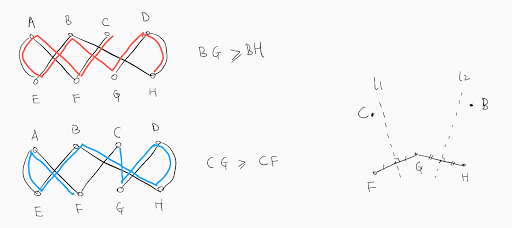 A B C D
E F G H
BG ⩾ BH
A B C D
E F G H
CG ⩾ CF
l1 l2
C B
F G H